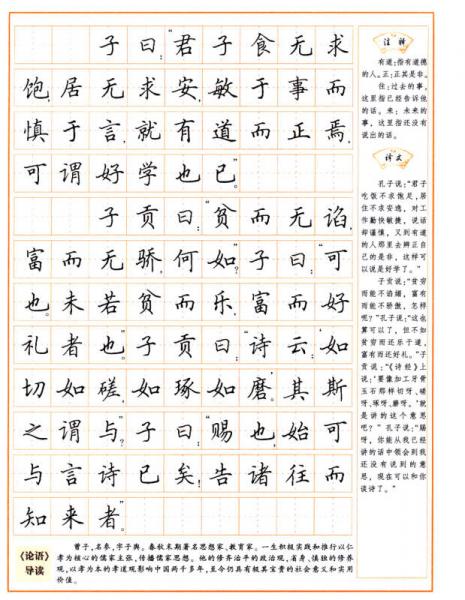 子曰:“君子食无求
饱,居无求安,敏于事而
慎于言,就有道而正焉,
可谓好学也已。”
子贡曰:“贫而无谄,
富而无骄,何如?”子曰:“可
也。未若贫而乐,富而好
礼者也。”子贡曰:“诗云:‘如
切如磋,如琢如磨。’其斯
之谓与?”子曰:“赐也,始可
与言诗已矣,告诸往而
知来者。”
注释
有道:指有道德
的人。正:正其是非。
往:过去的事,
这里指已经告诉他
的话。来:未来的
事,这里指还没有
说出的话。
译文
孔子说:“君子
吃饭不求饱足,居
住不求安逸,对工
作勤快敏捷,说话
却谨慎,又到有道
的人那里去辨正自
己的是非,这样可
以说是好学了。”
子贡说:“贫穷
而能不谄媚,富有
而能不骄傲,怎样
呢?”孔子说:“这也
算可以了,但不如
贫穷而还乐于道,
富有而还好礼。”子
贡说:“《诗经》上
说:‘要像加工牙骨
玉石那样切呀、磋
呀、琢呀、磨呀。’就
是讲的这个意思
吧?”孔子说:“赐
呀,你能从我已经
讲的话中领会到我
还没有说到的意
思,现在可以和你
谈诗了。”
《论语》
导读
曾子,名参,字子舆。春秋末期著名思想家、教育家。一生积极实践和推行以仁
孝为核心的儒家主张,传播儒家思想。他的修齐治平的政治观,省身、慎独的修养
观,以孝为本的孝道观影响中国两千多年,至今仍具有极其宝贵的社会意义和实用
价值。